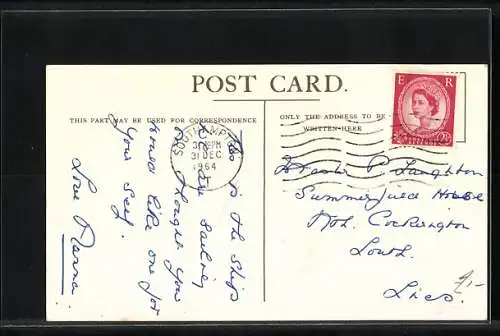 POST CARD.
THIS PART MAY BE USED FOR CORRESPONDENCE
ONLY THE ADDRESS TO BE
WRITTEN HERE
E R
2½
SOUTHAMPTON
31 DEC
1964
This is the Ships
we are sailing
on. Thought you
would like one for
your self.
Love Nanna
Master P. Laughton
Summerfield House
Nth. Cockerington
Louth.
Lincs.
£1-